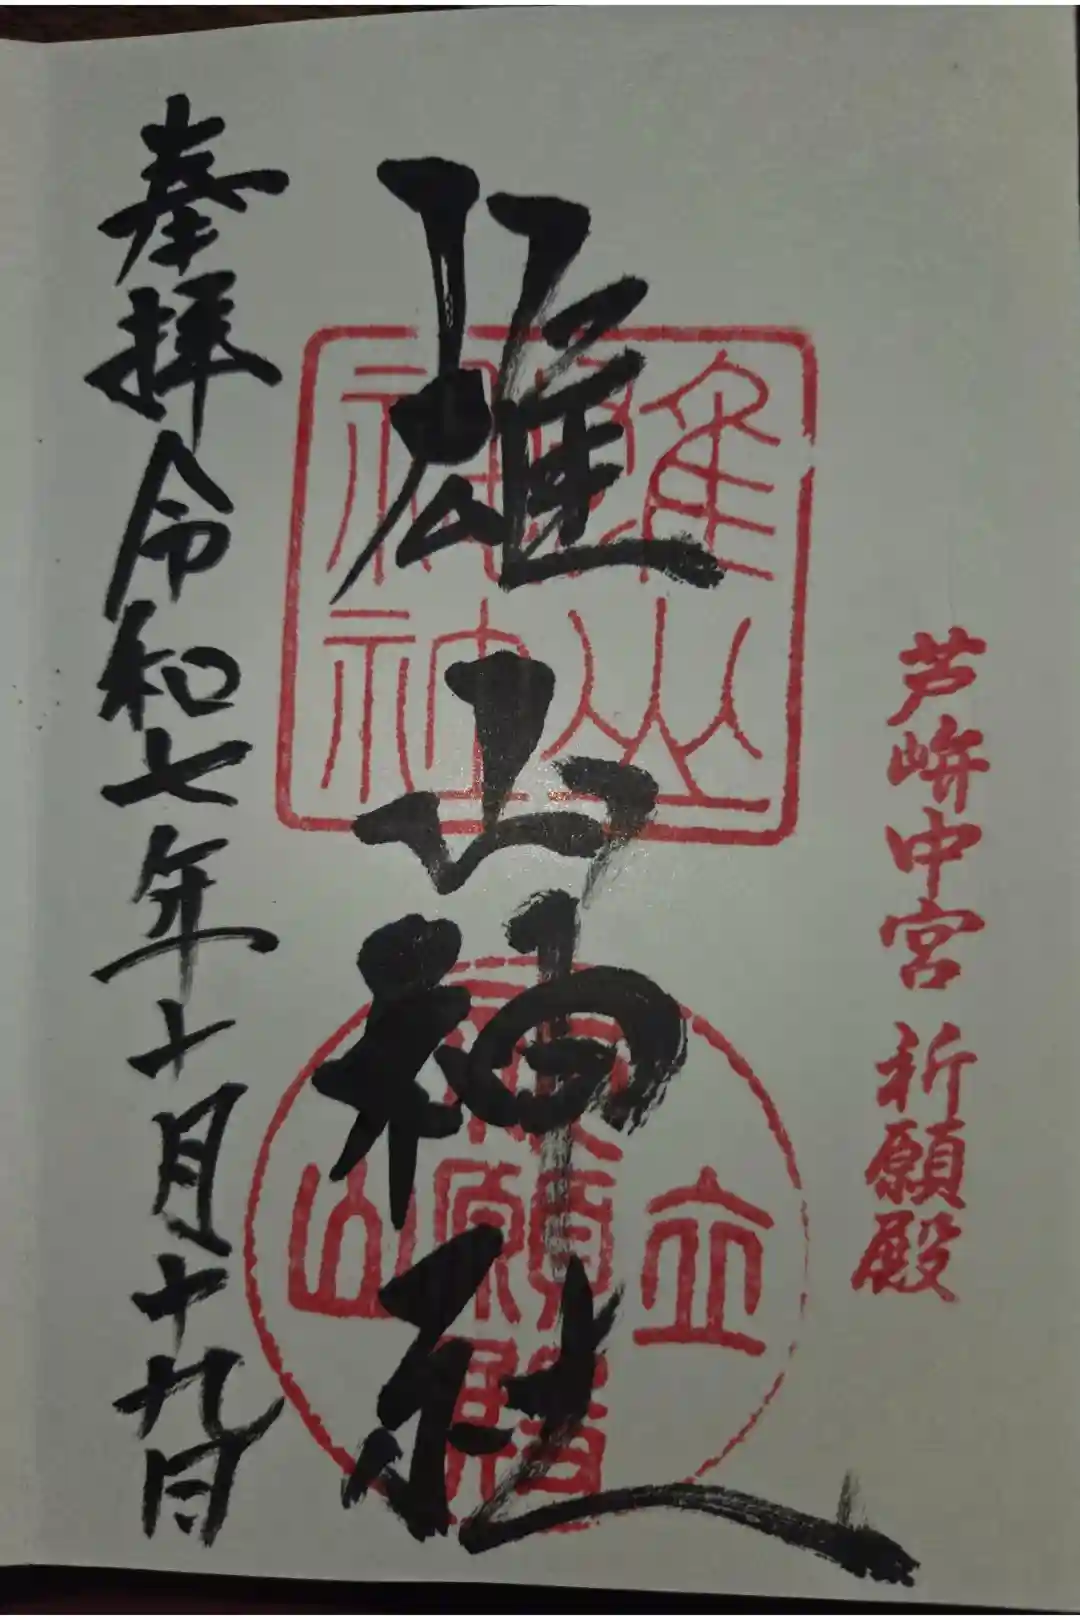 芦峅中宮 祈願殿
雄山神社
雄山
神社
立山
祈願殿
奉拝 令和七年十月十九日